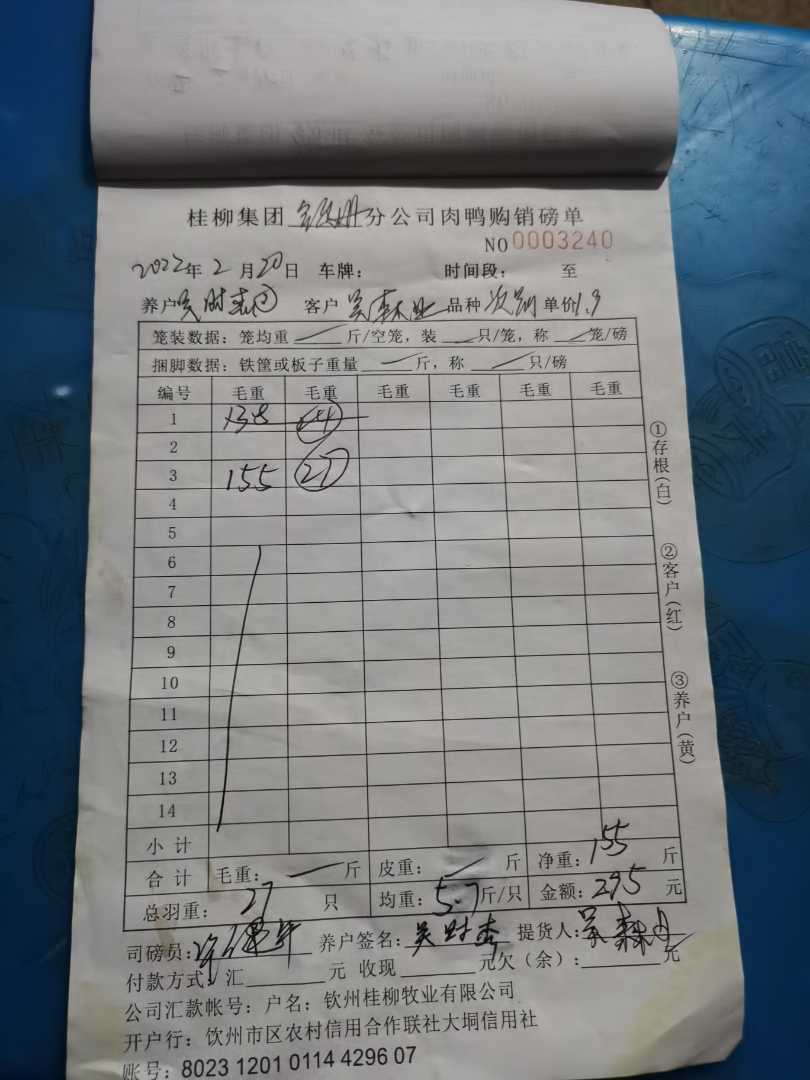 桂柳集团 分公司肉鸭购销磅单
NO 0003240
2022年2月20日 车牌： 时间段： 至
养户 吴时 客户 吴森 品种 次 单价1.9
笼装数据：笼均重 斤/空笼，装 只/笼，称 笼/磅
捆脚数据：铁筐或板子重量 斤，称 只/磅
编号 毛重 毛重 毛重 毛重 毛重 毛重
1 138 24
2
3 155 27
4
5
6
7
8
9
10
11
12
13
14
小 计
合 计 毛重： 斤 皮重： 斤 净重：155 斤
总羽重：27 只 均重：5.7斤/只 金额：295 元
司磅员： 养户签名：吴时 提货人：吴森
付款方式：汇 元 收现 元欠（余）： 元
公司汇款帐号：户名：钦州桂柳牧业有限公司
开户行：饮州市区农村信用合作联社大垌信用社
账号：8023 1201 0114 4296 07
①存根（白）
②客户（红）
③养户（黄）